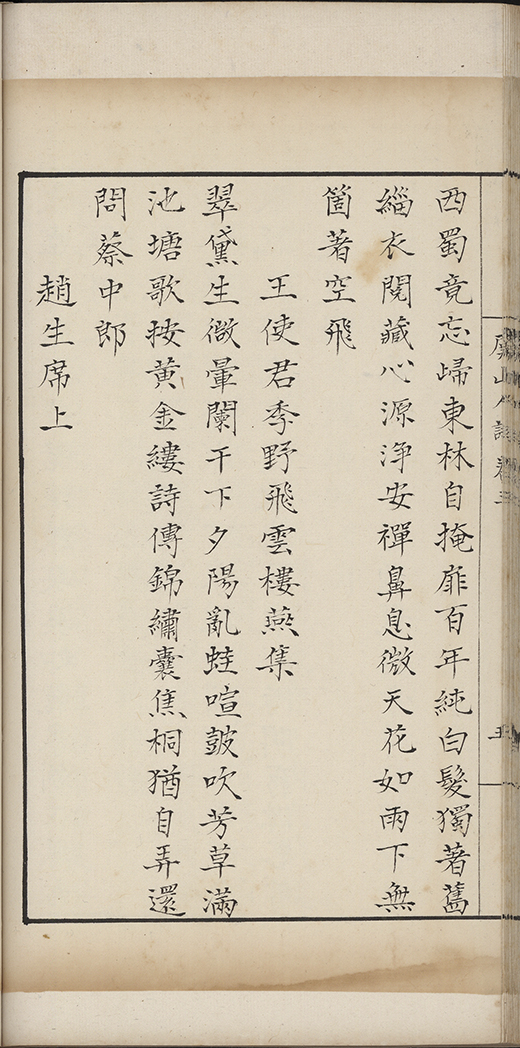 西蜀竟忘歸東林自掩扉百年純白髮獨著舊
緇衣閱藏心源浄安禪鼻息微天花如雨下無
箇著空飛
王使君季野飛雲樓燕集
翠黛生微暈闌干下夕陽亂蛙喧鼓吹芳草滿
池塘歌按黄金縷詩傳錦繡囊焦桐猶自弄還
問蔡中郎
趙生席上